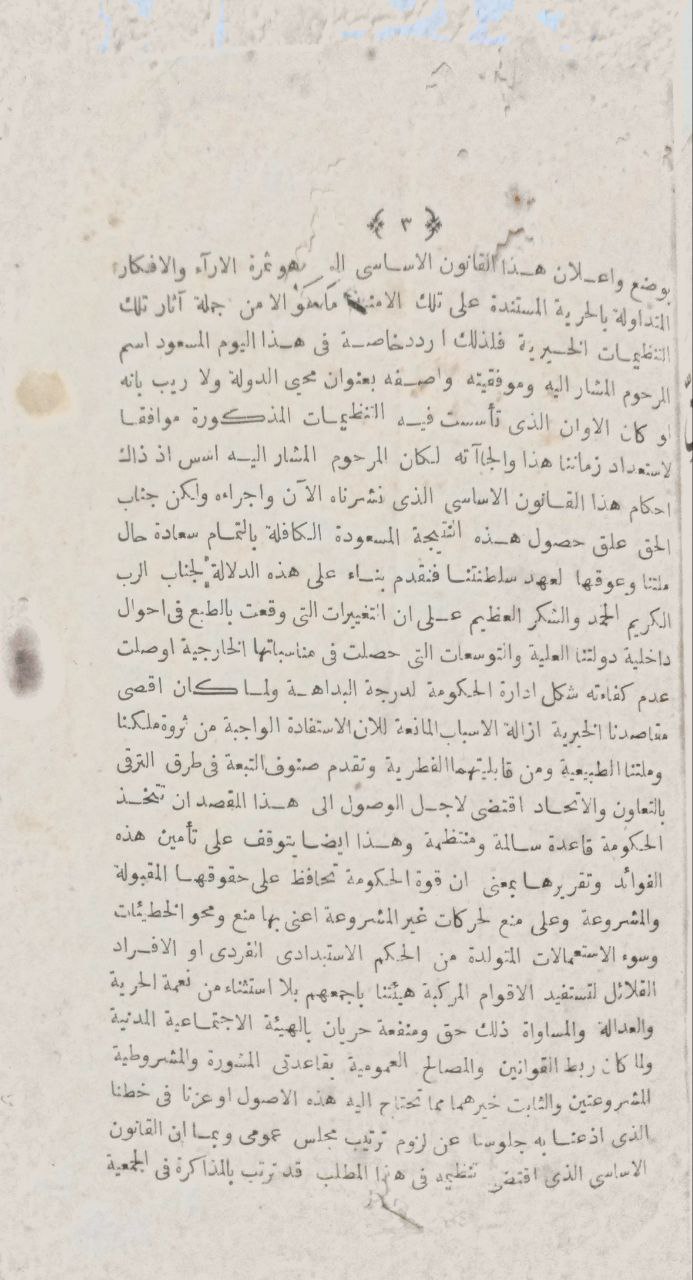 ﴿ ٣ ﴾
بوضع واعـلان هـذا القانون الاسـاسى هو ثمرة الارآء والافكار
المتداولة بالحرية المستندة على تلك الامنية ما هو الا من جملة آثار تلك
التنظيمـات الخـيرية فلذلك اردد خاصـة فى هـذا اليوم المسعود اسم
المرحوم المشار اليه وموفقيته واصـفه بعنوان محيى الدولة ولا ريب بانه
لو كان الاوان الذى تأسست فيـه التنظيمـات المذكورة موافقـا
لاستعداد زماننا هذا والجاآته لـكان المرحوم المشار اليـه اسس اذ ذاك
احكام هذا القـانون الاساسي الذى نشرناه الآن واجراءه ولكن جناب
الحق علق حصول هـذه النتيجة المسعودة الـكافلة بالتمـام سعادة حال
ملتنا وعوقها لعهد سلطنتنـا فنقدم بنـاء على هذه الدلالة لجناب الرب
الكريم الحمد والشكر العظيم عـلى ان التغييرات التى وقعت بالطبع فى احوال
داخلية دولتنا العلية والتوسعات التى حصلت فى مناسباتها الخارجية اوصلت
عدم كفاءته شكل ادارة الحـكومة لدرجة البداهـة ولمـا كان اقصى
مقاصدنا الخيرية ازالة الاسباب المانعة للان الاستفادة الواجبة من ثروة ملكنا
وملتنا الطبيعية ومن قابليتهما الفطرية وتقدم صنوف التبعة فى طرق الترقى
بالتعاون والاتحـاد اقتضى لاجـل الوصول الى هـذا المقصد ان تتخـذ
الحـكومة قاعدة سـالمة ومنتظمة وهـذا ايضـا يتوقف على تأمين هذه
الفوائد وتقريرهـا بمعنى ان قوة الحـكومة تحافظ على حقوقهـا المقبولة
والمشروعة وعلى منع لحركات غير المشروعة اعنى بها منع ومحو الخطيئات
وسوء الاستعمالات المتولدة من الحـكم الاستبدادى الفردى او الافـراد
القلائل لتستفيد الاقوام المركبة هيئتنا باجمعهم بلا استثناء من نعمة الحرية
والعدالة والمساواة ذلك حق ومنفعة حريان بالهيئة الاجتمـاعية المدنية
ولما كان ربط القوانين والمصالح العمومية بقاعدتى المشورة والمشروطية
المشروعتين والثابت خيرهما مما تحتاج اليه هذه الاصول اوعزنا فى خطنا
الذى اذعنـا به جلوسنا عن لزوم ترتيب مجلس عمومى وبمـا ان القانون
الاساسى الذى اقتضى تنظيمه فى هذا المطلب قد ترتب بالمذاكرة فى الجمعية